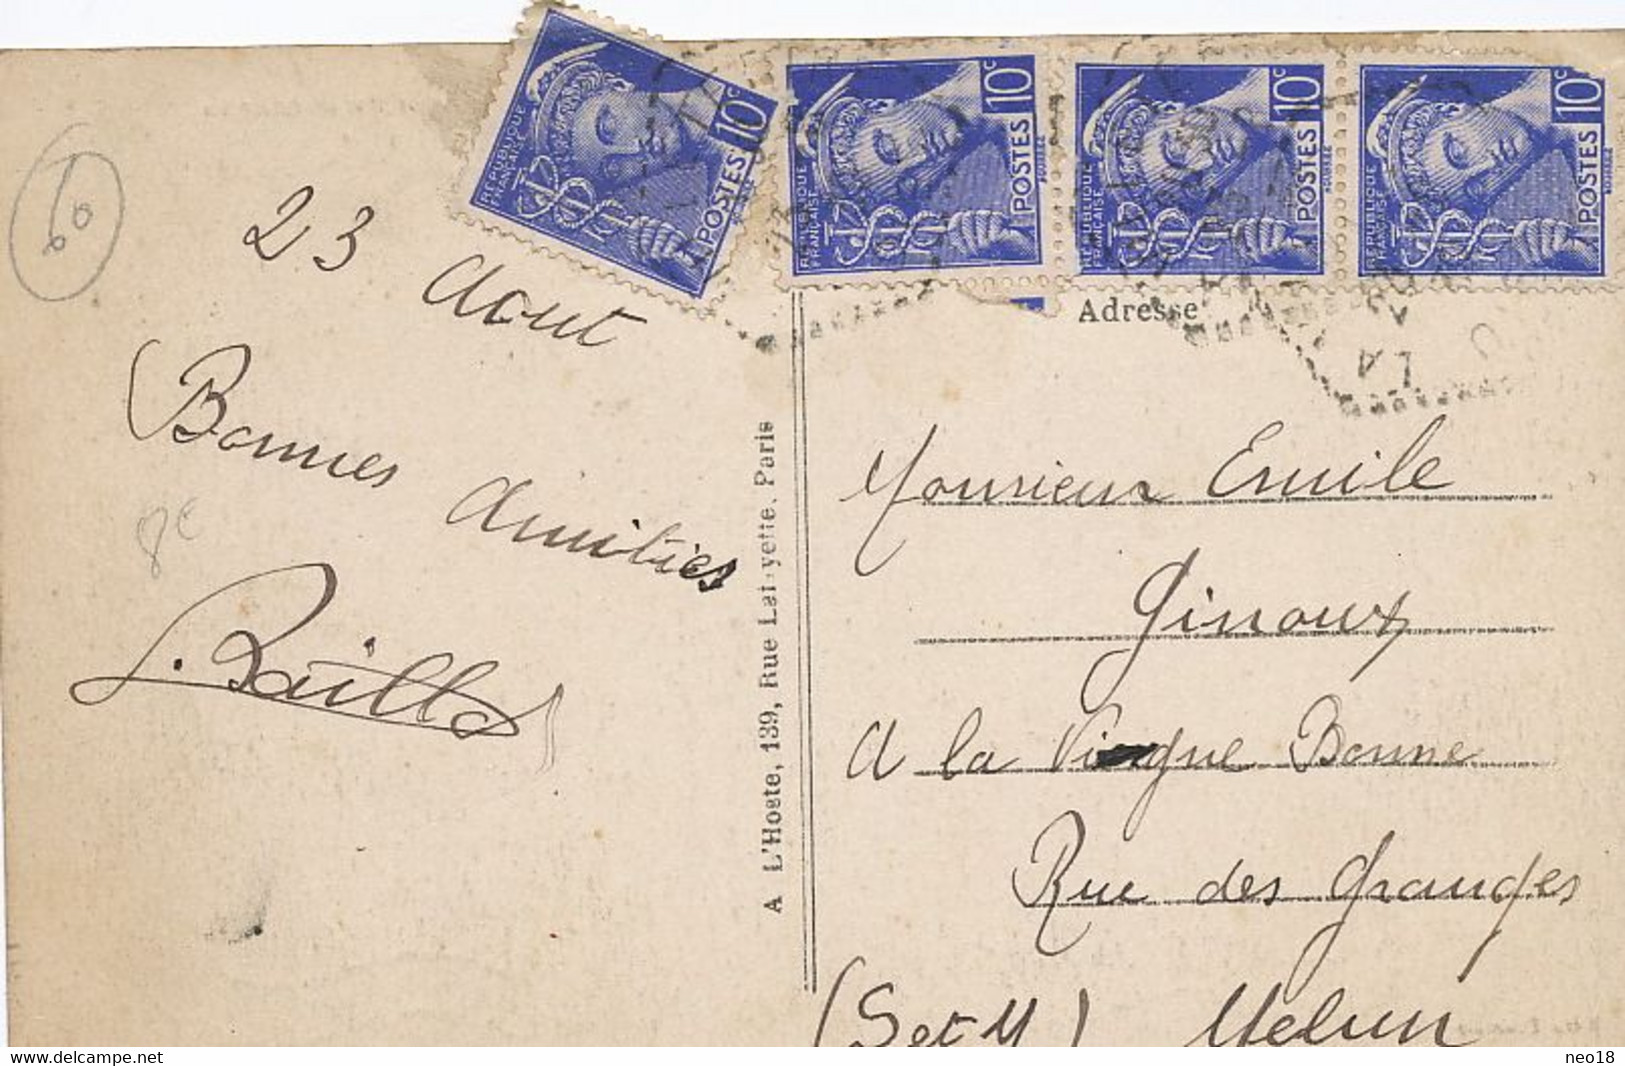 60
23 Aout
Bonnes Amities
8€
RÉPUBLIQUE FRANÇAISE
10c
POSTES
RÉPUBLIQUE FRANÇAISE
10c
POSTES
RÉPUBLIQUE FRANÇAISE
10c
POSTES
RÉPUBLIQUE FRANÇAISE
10c
POSTES
A L'Hoste, 139, Rue Lafayette. Paris
Adresse
Monsieur Emile
Ginoux
A la Vierge Bonne
Rue des Granges
(S et M) Melun
delcampe.net
neo18